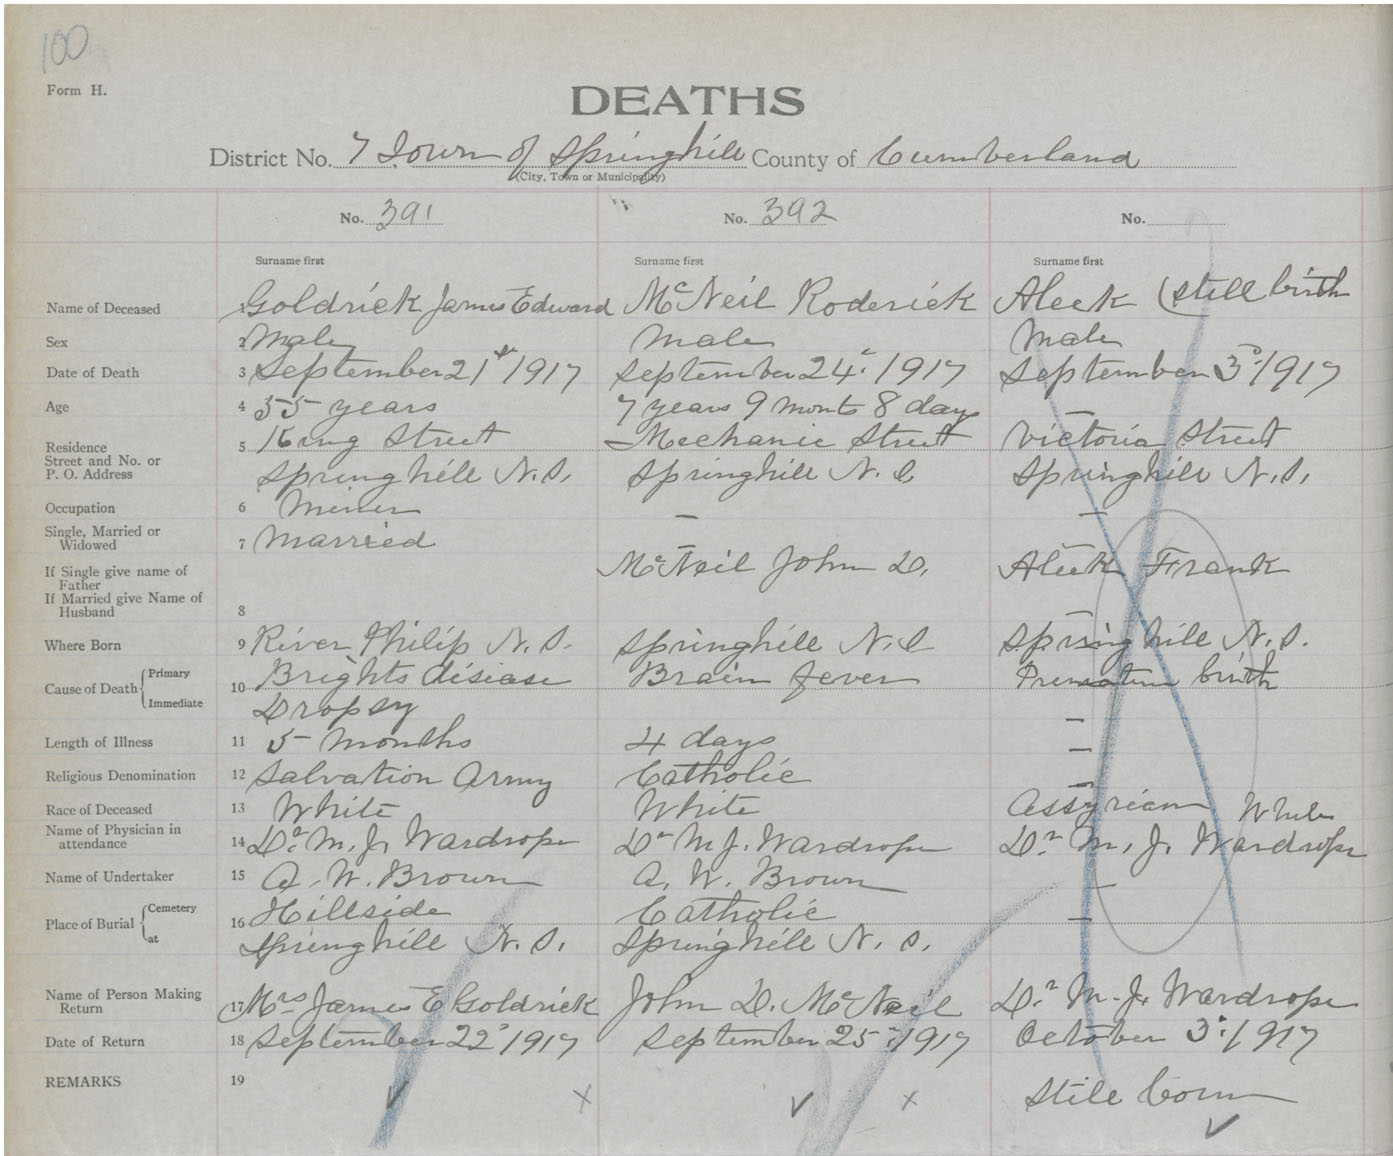 100
Form H.
DEATHS
District No. 7 Town of Springhill County of Cumberland
(City, Town or Municipality)
No. 391 No. 392 No.
Surname first Surname first Surname first
Name of Deceased 1 Goldrick James Edward McNeil Roderick Aleek (still birth
Sex 2 Male Male Male
Date of Death 3 September 21st 1917 September 24th 1917 September 3d 1917
Age 4 55 years 7 years 9 mont's 8 days —
Residence
Street and No. or
P. O. Address
5 King Street Mechanic Street Victoria Street
Springhill N.S. Springhill N.S. Springhill N.S.
Occupation 6 Miner — —
Single, Married or
Widowed
7 Married — —
If Single give name of
Father
McNeil John D. Aleek Frank
If Married give Name of
Husband
8 —
Where Born 9 River Philip N.S. Springhill N.S. Springhill N.S.
Cause of Death { Primary 10 Brights disiase Brain fever Premature birth
Immediate Dropsy —
Length of Illness 11 5 months 4 days —
Religious Denomination 12 Salvation Army Catholic —
Race of Deceased 13 White White Assyrian White
Name of Physician in
attendance
14 Dr. M. J. Wardrope Dr M J. Wardrope Dr. M. J. Wardrope
Name of Undertaker 15 A. W. Brown A. W. Brown —
Place of Burial { Cemetery 16 Hillside Catholic —
at Springhill N.S. Springhill N.S.
Name of Person Making
Return
17 Mrs James E Goldrick John D. McNeil Dr. M. J. Wardrope
Date of Return 18 September 22d 1917 September 25th 1917 October 3d 1917
REMARKS 19 Still born